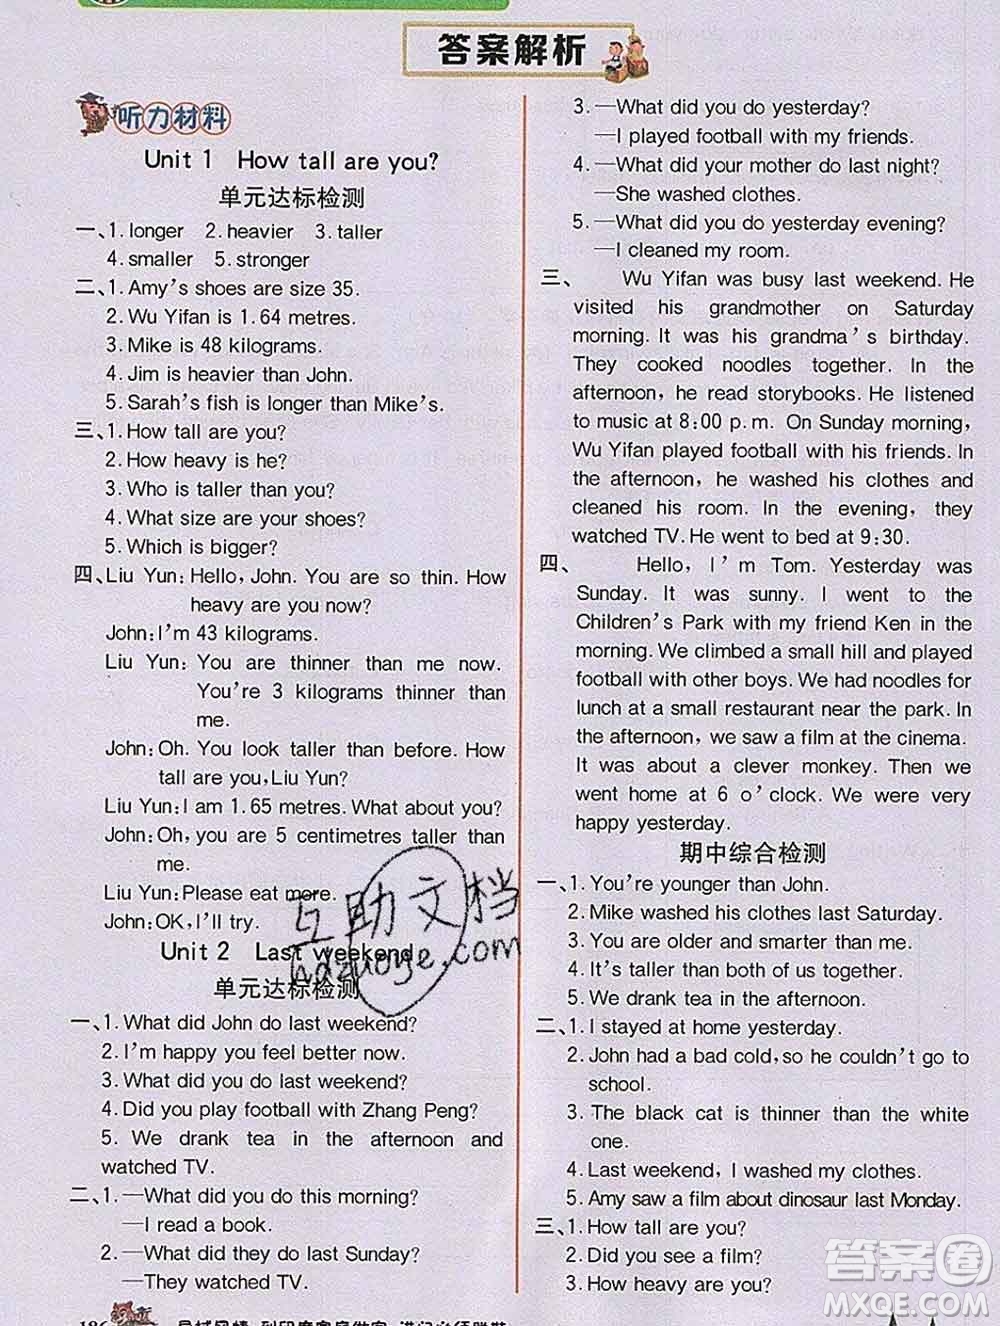 答案解析
听力材料
Unit 1 How tall are you?
单元达标检测
一、1. longer 2. heavier 3. taller
4. smaller 5. stronger
二、1. Amy's shoes are size 35.
2. Wu Yifan is 1.64 metres.
3. Mike is 48 kilograms.
4. Jim is heavier than John.
5. Sarah's fish is longer than Mike's.
三、1. How tall are you?
2. How heavy is he?
3. Who is taller than you?
4. What size are your shoes?
5. Which is bigger?
四、Liu Yun: Hello, John. You are so thin. How
heavy are you now?
John: I'm 43 kilograms.
Liu Yun: You are thinner than me now.
You're 3 kilograms thinner than
me.
John: Oh. You look taller than before. How
tall are you, Liu Yun?
Liu Yun: I am 1.65 metres. What about you?
John: Oh, you are 5 centimetres taller than
me.
Liu Yun: Please eat more.
John: OK, I'll try.
Unit 2 Last weekend
单元达标检测
一、1. What did John do last weekend?
2. I'm happy you feel better now.
3. What did you do last weekend?
4. Did you play football with Zhang Peng?
5. We drank tea in the afternoon and
watched TV.
二、1. —What did you do this morning?
—I read a book.
2. —What did they do last Sunday?
—They watched TV.
186
3. —What did you do yesterday?
—I played football with my friends.
4. —What did your mother do last night?
—She washed clothes.
5. —What did you do yesterday evening?
—I cleaned my room.
三、 Wu Yifan was busy last weekend. He
visited his grandmother on Saturday
morning. It was his grandma's birthday.
They cooked noodles together. In the
afternoon, he read storybooks. He listened
to music at 8:00 p.m. On Sunday morning,
Wu Yifan played football with his friends. In
the afternoon, he washed his clothes and
cleaned his room. In the evening, they
watched TV. He went to bed at 9:30.
四、 Hello, I'm Tom. Yesterday was
Sunday. It was sunny. I went to the
Children's Park with my friend Ken in the
morning. We climbed a small hill and played
football with other boys. We had noodles for
lunch at a small restaurant near the park. In
the afternoon, we saw a film at the cinema.
It was about a clever monkey. Then we
went home at 6 o'clock. We were very
happy yesterday.
期中综合检测
一、1. You're younger than John.
2. Mike washed his clothes last Saturday.
3. You are older and smarter than me.
4. It's taller than both of us together.
5. We drank tea in the afternoon.
二、1. I stayed at home yesterday.
2. John had a bad cold, so he couldn't go to
school.
3. The black cat is thinner than the white
one.
4. Last weekend, I washed my clothes.
5. Amy saw a film about dinosaur last Monday.
三、1. How tall are you?
2. Did you see a film?
3. How heavy are you?
互助文档
hdzuoye.com
答案圈
MXQE.COM